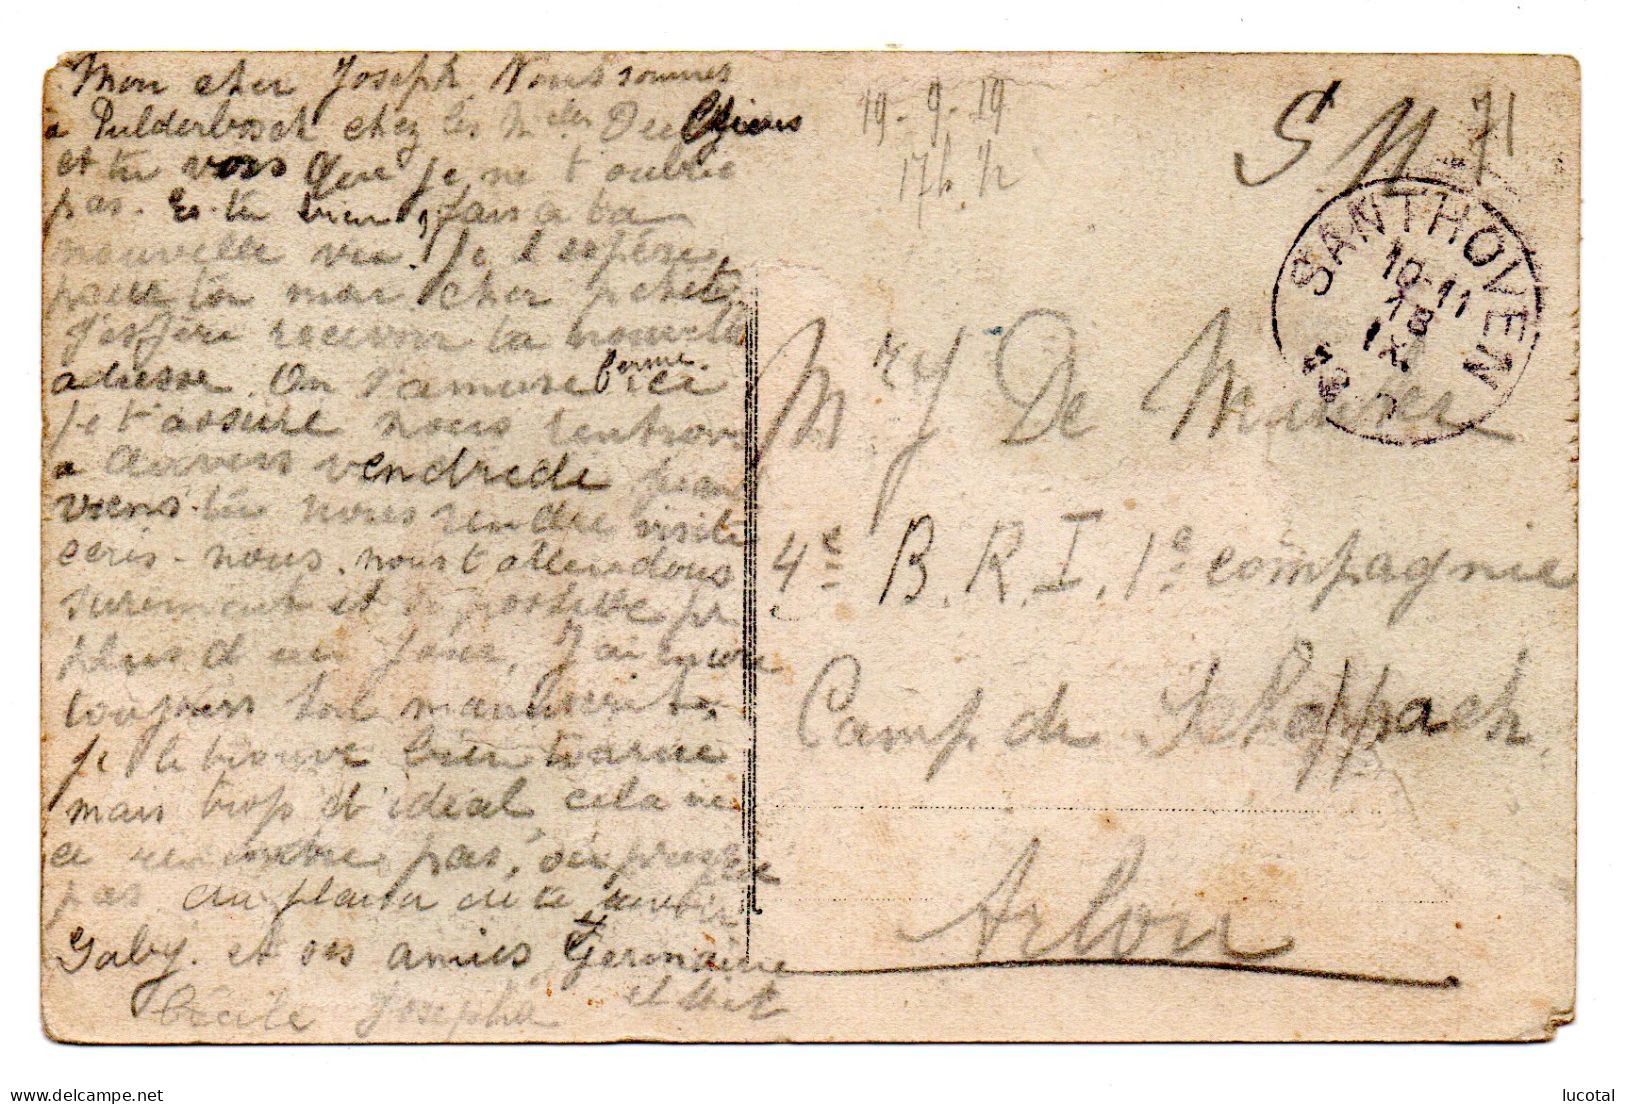 Mon cher Joseph. Nous sommes
a Pulderbosch chez les Mlles De Cleires
et tu vois que je ne t'oublie
pas. Es-tu bien, fais a ta
nouvelle vie. Je l'espére
pour toi mon cher petit
j'espére recevoir ta nouvelle
adresse. On s'amuse ferme ici
je t'assure nous rentrons
a Anvers vendredi
viens-tu nous rendre visite
ecris-nous. nous t'attendons
surement et si possible pr
plus d'un jour. J'ai encore
toujours ton manuscrit.
je le trouve bien tourné
mais trop d'idéal, cela ne
se rencontre pas,
pas au plaisir de te revoir
Gaby. et ses amies Germaine
Cécile Josepha et
19-9-19
17h ½
S.M. 71
SANTHOVEN
10-11
18
IX
Mr J De
4e B.R.I. 1e compagnie
Camp de Schoppach
Arlon
lucotal